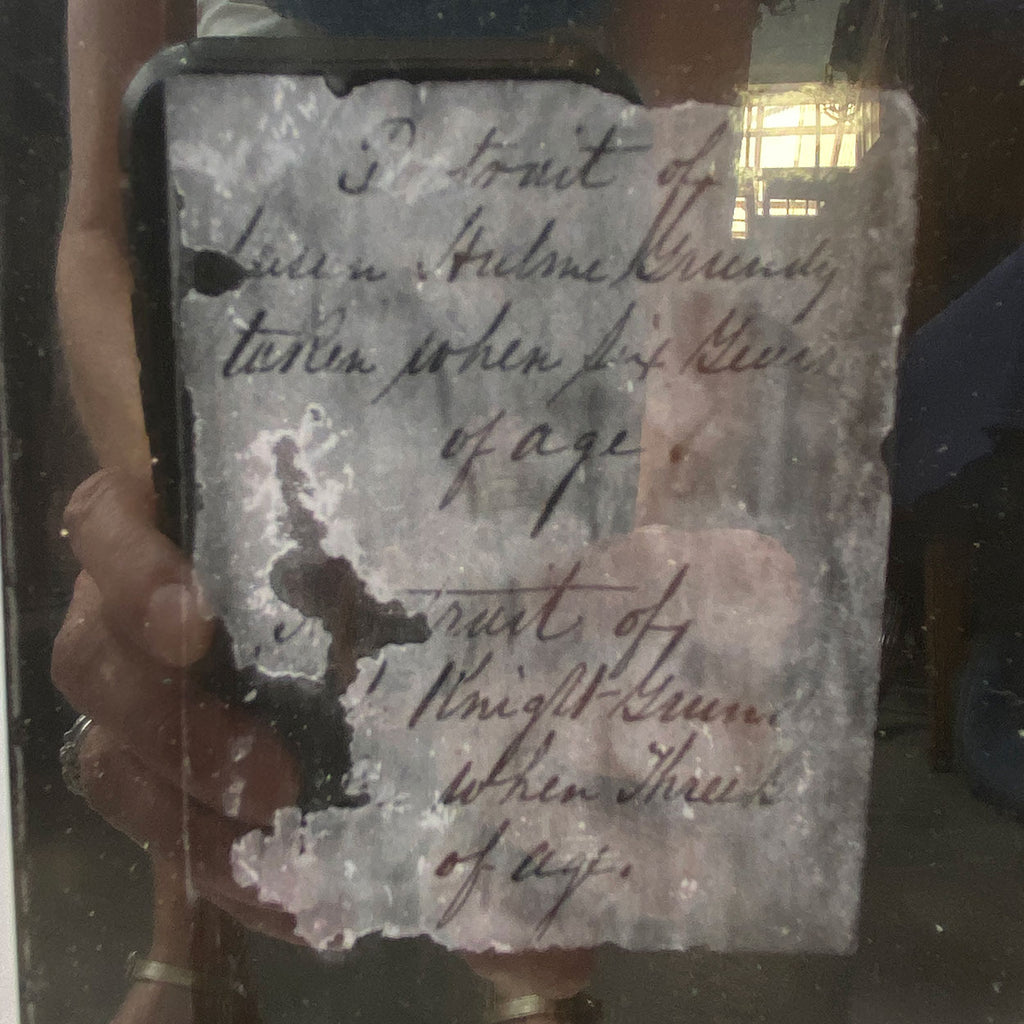 Portrait of
Hulme Grundy
taken when six Years
of age.
of
Knight
when Three
of age.